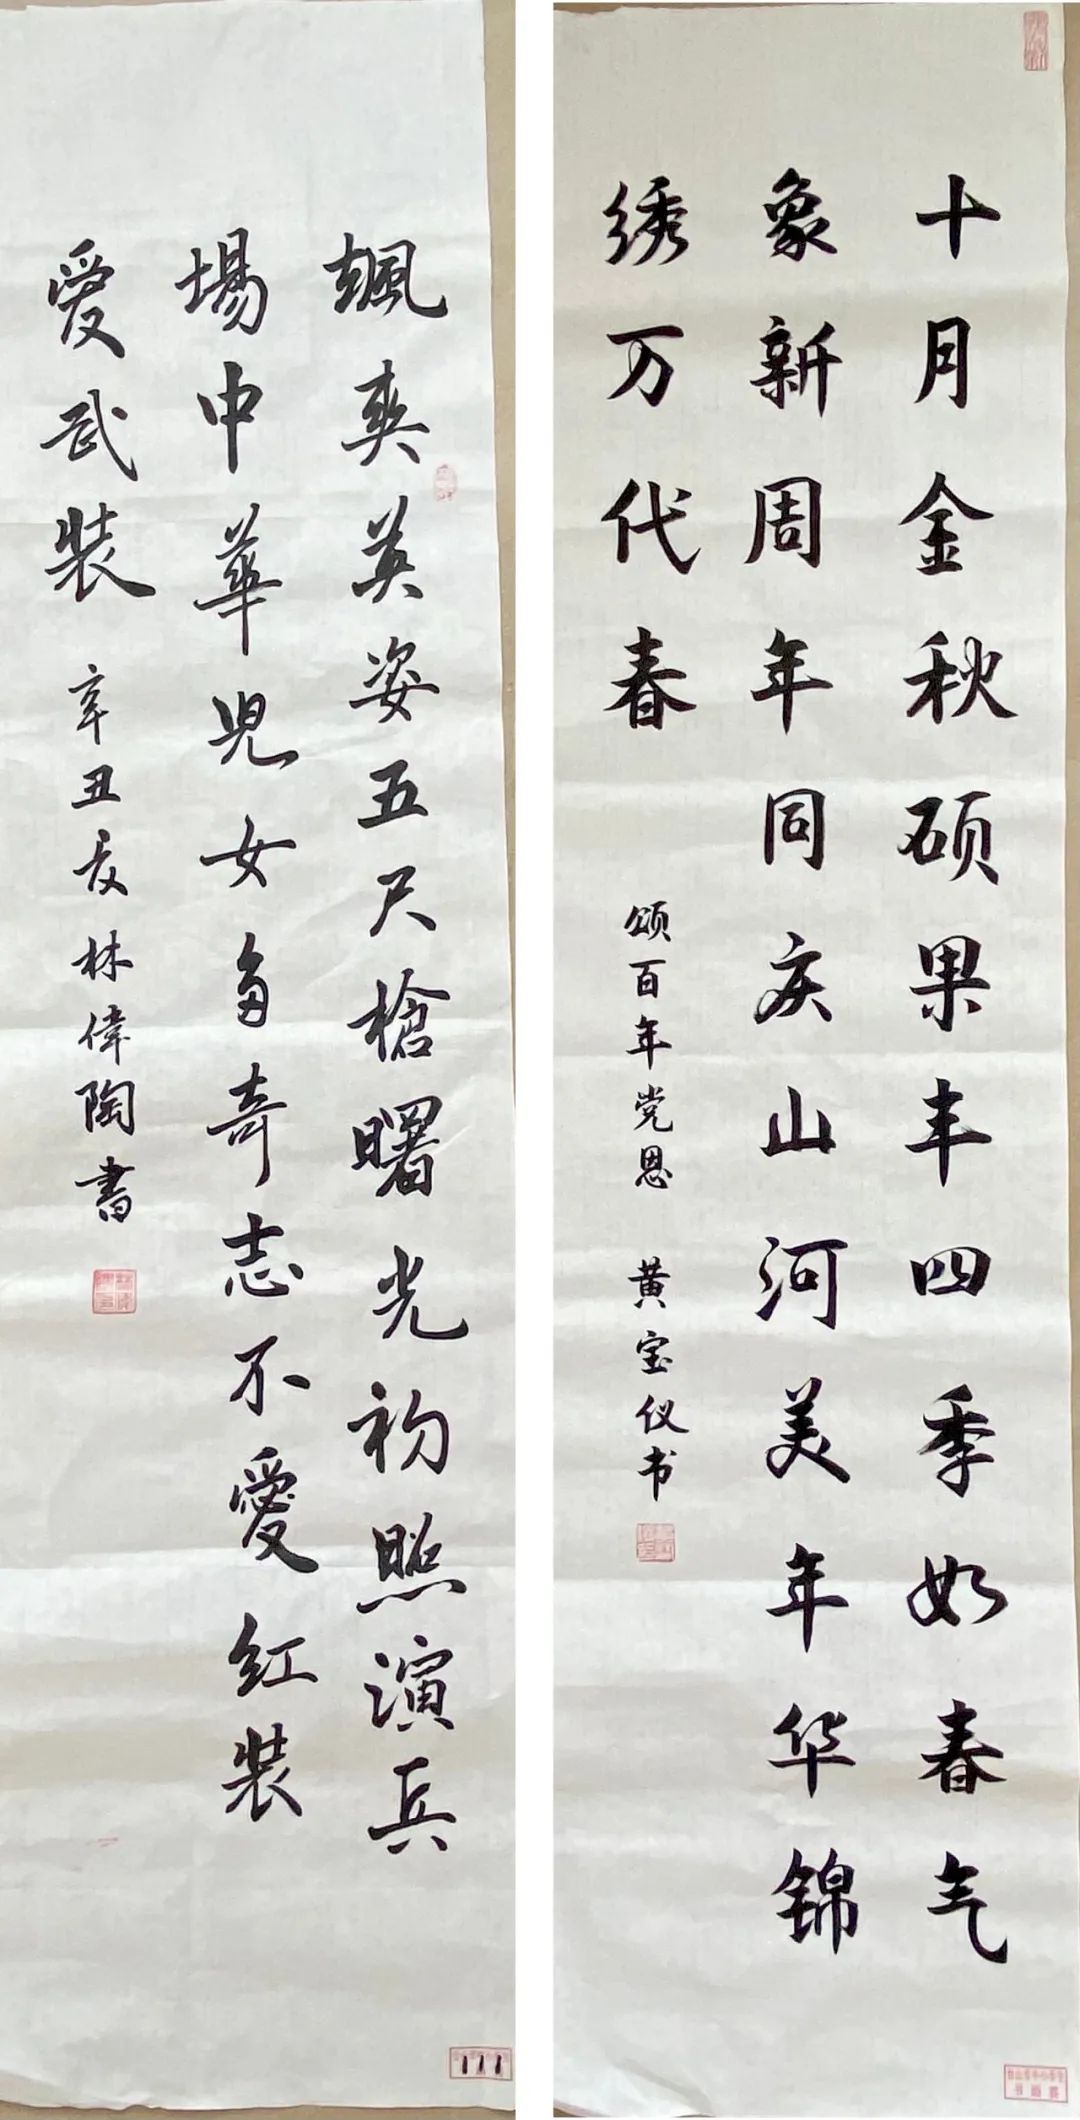 十月金秋硕果丰四季如春气
象新周年同庆山河美年华锦
绣万代春
颂百年党恩 黄宝仪书
飒爽英姿五尺槍曙光初照演兵
場中華兒女多奇志不愛红装
愛武装
辛丑夏林偉陶書
111